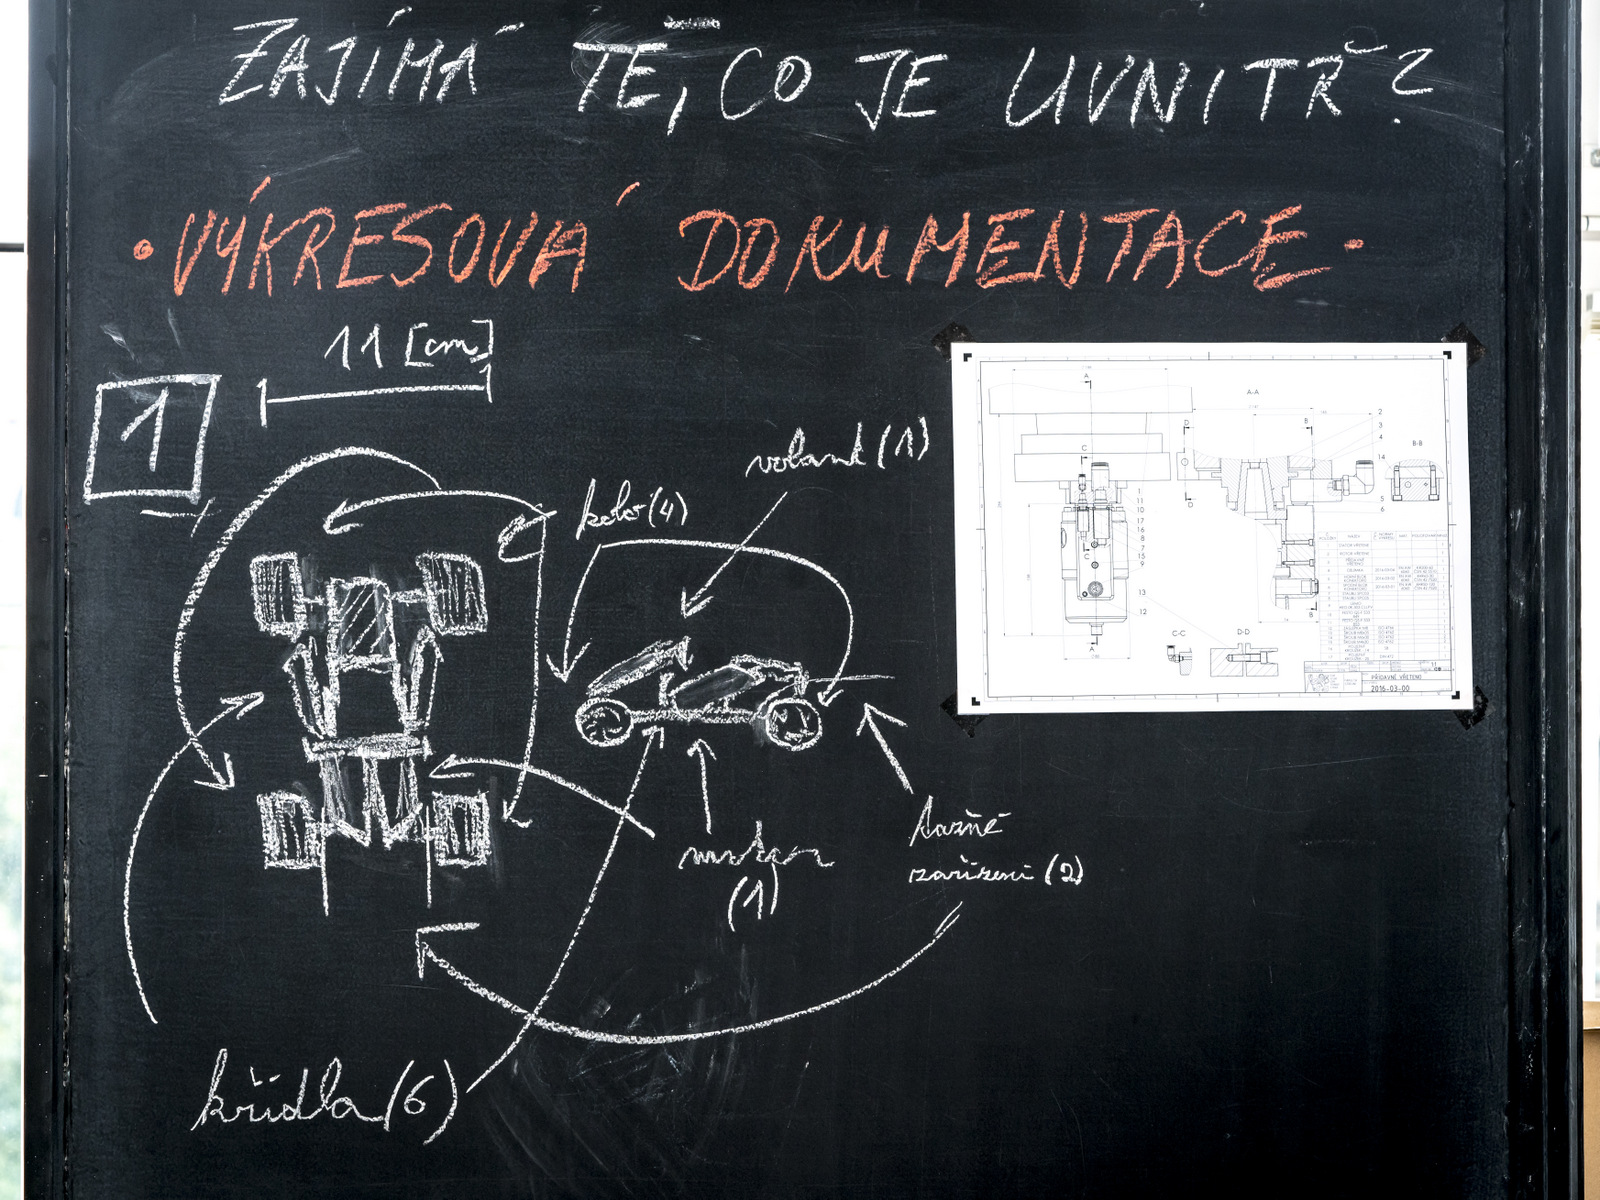 ZAJÍMÁ TĚ, CO JE UVNITŘ?
• VÝKRESOVÁ DOKUMENTACE •
11 [cm]
1
volant (1)
kolo (4)
motor
(1)
tažné
zařízení (2)
křídla (6)
A
A-A
D
B
2
3
4
14
B-B
C
5
6
D
1
11
10
17
16
8
7
15
9
C
13
12
B
A
C-C
D-D
PŘÍDAVNÉ VŘETENO
2016-03-00